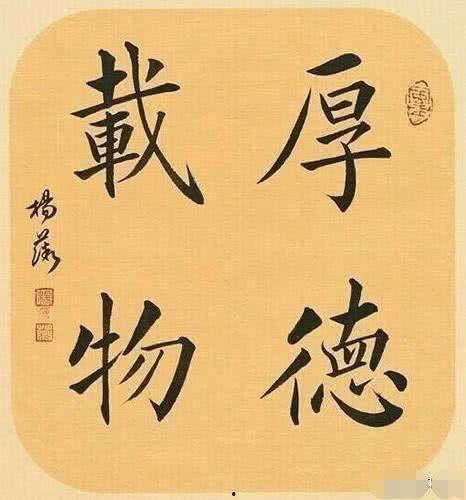 厚德
載物
楊薇